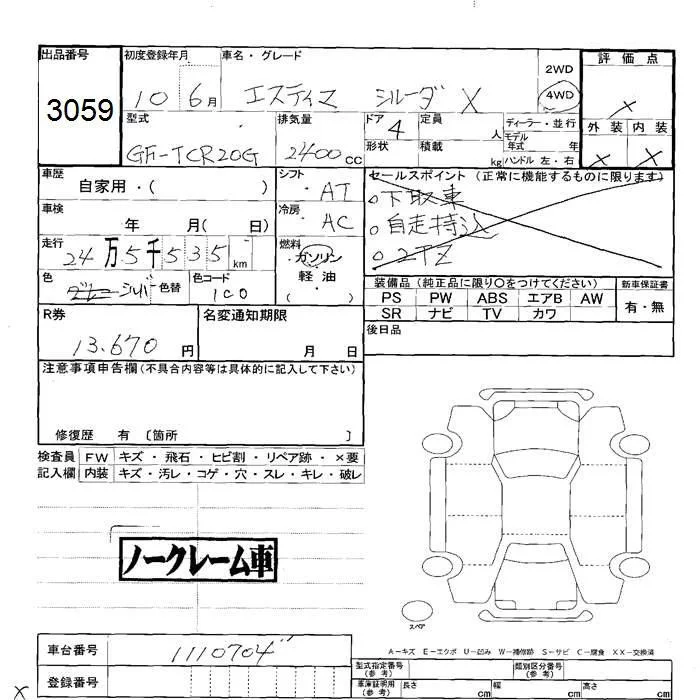 出品番号 初度登録年月 車名・グレード 評価点
3059 10 6月 エスティマ シルーダ X 2WD 4WD X
型式 排気量 ドア 定員 ディーラー・並行 外装 内装
GF-TCR20G 2400cc 4 人 モデル年式 年 X X
形状 積載 kg ハンドル 左・右
車歴 シフト セールスポイント (正常に機能するものに限ります)
自家用・( ) AT 。下取車
車検 冷房 。自走持込
年 月( 日) AC 。2TZ
走行 燃料
24万5千535km ガソリン・軽油・( )
色 色コード 装備品 (純正品に限り○をつけてください) 新車保証書
シルバー 色替 1C0 PS PW ABS エアB AW 有・無
SR ナビ TV カワ
R券 名変通知期限 後日品
13.670円 月 日
注意事項申告欄(不具合内容等は具体的に記入して下さい)
修復歴 有 〔箇所 〕
検査員 FW キズ・飛石・ヒビ割・リペア跡・×要
記入欄 内装 キズ・汚レ・コゲ・穴・スレ・キレ・破レ
ノークレーム車
スペア
A-キズ E-エクボ U-凹み W-補修跡 S-サビ C-腐食 XX-交換済
車台番号 1110704
登録番号
型式指定番号(参考) 類別区分番号(参考)
車庫証明用(参考) 長さ cm 幅 cm 高さ cm
X